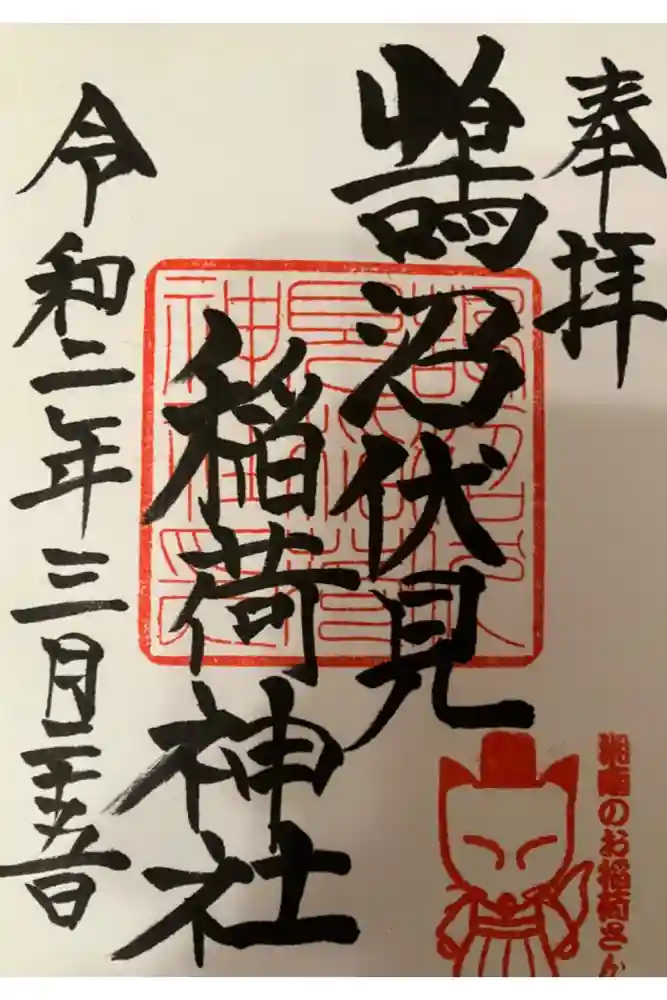 奉拝
鵠沼伏見
稲荷神社
令和二年三月二十五日
湘南のお稲荷さん